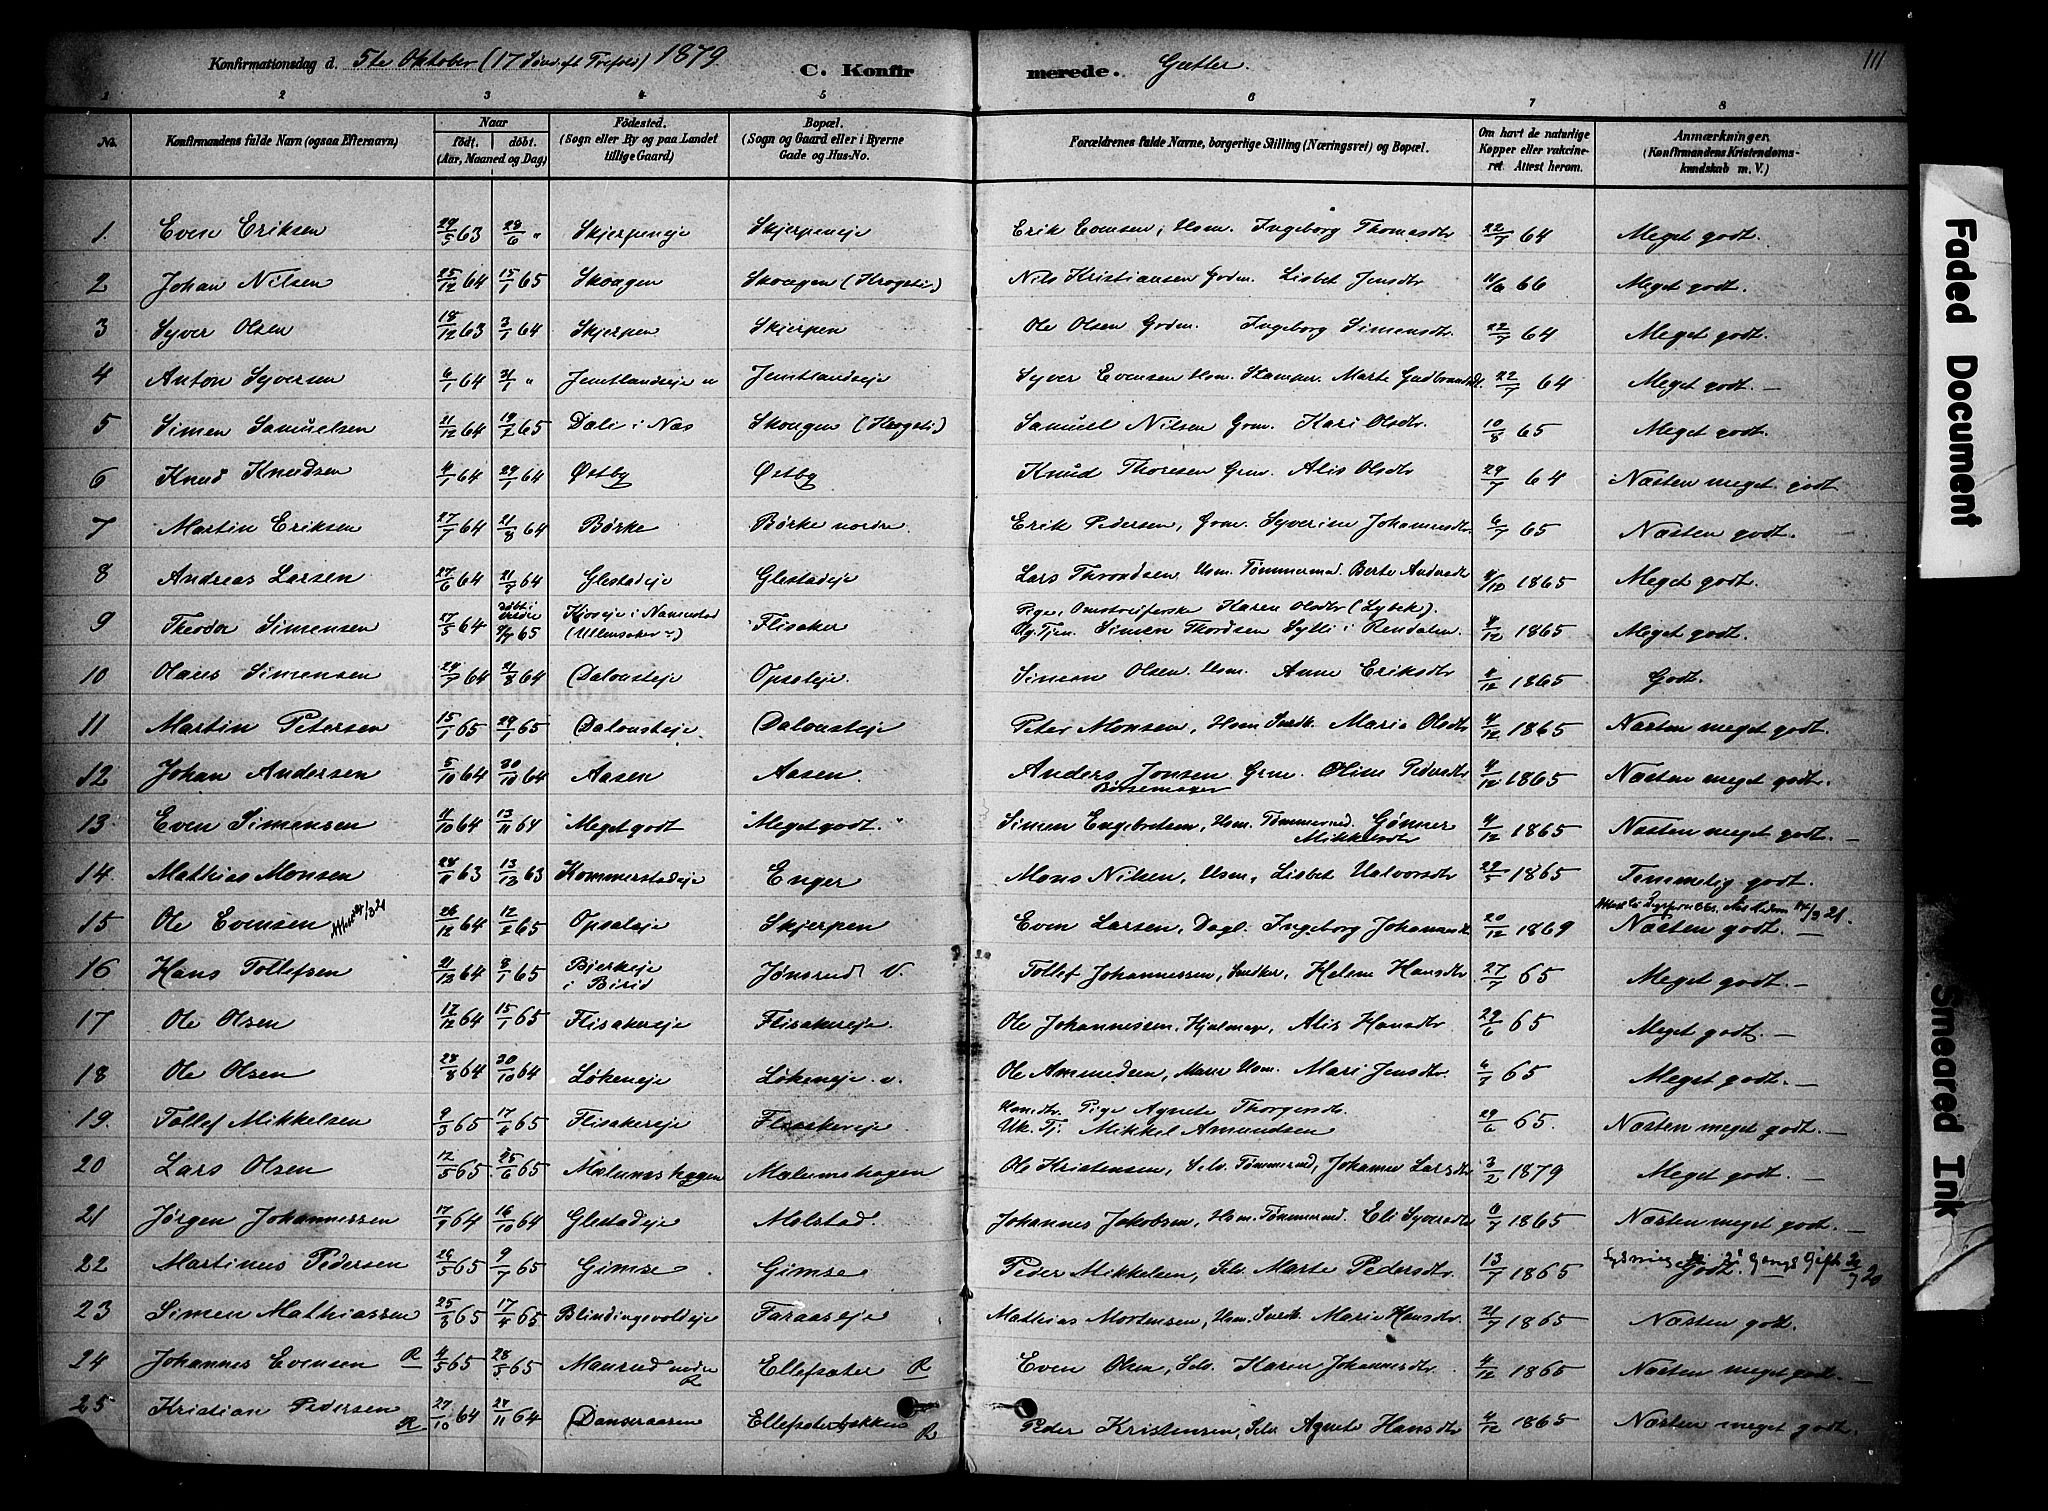 Konfirmationsdag d. 5te Oktober (17 Sønd. eft. Trefold) 1879. C. Konfir merede. Gutter. 111
1 2 3 4 5 6 7 8
No. Konfirmandens fulde Navn (ogsaa Efternavn) Naar født. døbt. (Aar, Maaned og Dag) Fødested. (Sogn eller By og paa Landet tillige Gaard) Bopæl. (Sogn og Gaard eller i Byerne Gade og Hus-No. Forældrenes fulde Navne, borgerlige Stilling (Næringsvei) og Bopæl. Om havt de naturlige Kopper eller vakcineret. Attest herom. Anmærkninger. (Konfirmandens Kristendomskundskab m. V.)
1. Even Eriksen 29/5 63 28/6 " Skjerpeneje Skjerpeneje Erik Evensen, Hsm. Ingeborg Thomasdtr 22/7 64 Meget godt.
2 Johan Nilsen 25/12 64 15/1 65 Skougen Skougen (Krogsti) Nils Kristiansen Grdm. Lisbet Jensdtr 11/6 66 Meget godt.
3 Syver Olsen 18/12 63 3/1 64 Skjerpen Skjerpen Ole Olsen Grdm. Ingeborg Simensdtr 22/7 64 Meget godt.
4 Anton Syversen 6/1 64 31/1 " Jemtlandseje Jemtlandseje Syver Evensen Hsm. Stamper. Marte Gudbrandsdt. 22/7 64 Meget godt. —
5 Simen Samuelsen 21/12 64 19/2 65 Dali i Næs Skougen (Krogsti) Samuel Nilsen Grm. Kari Olsdtr 10/8 65 Meget godt.
6 Knud Knudsen 4/1 64 29/1 64 Østby Østby Knud Thoresen Grm. Alis Olsdtr 29/7 64 Næsten meget godt
7 Martin Eriksen 27/7 64 21/8 64 Børke Børke nordre Erik Pedersen, Grm. Syverine Johannesdtr 6/7 65 Næsten godt.
8 Andreas Larsen 27/6 64 21/7 64 Glestadeje Glestadeje Lars Throndsen Hsm. Tømmermd. Berte Andersdtr 4/12 1865 Meget godt.
9 Theodor Simensen 27/5 64 Døbt i 65 i Nannestad (Ullensaker) Flisaker Pige, Omstreiferske Karen Olsdtr (Lybek).
Ug. Tjen. Simen Thordsen Sylli i Rendalen. 4/12 1865 Meget godt.
10 Olaus Simensen 24/7 64 21/8 64 Dalousteje Opsaleje. Simen Olsen. Hsm. Anne Eriksdtr 4/12 1865 Godt.
11 Martin Petersen 15/1 65 29/1 65 Dalousteje Dalousteje Peter Monsen, Hsm. Snedk. Marie Olsdtr 4/12 1865 Næsten meget godt.
12 Johan Andersen 5/10 64 30/10 64 Aasen Aasen Anders Jonsen Grm. Oline Pedersdtr 4/12 1865 Næsten meget godt.
Børsemager
13. Even Simensen 11/10 64 13/11 64 Meget godt Meget godt. " Simen Engebretsen, Hsm. Tømmermd. Gønner Mikkelsdtr 4/12 1865 Næsten meget godt. —
14. Mathias Monsen 28/11 63 13/12 63 Kommerstadeje Enger Mons Nilsen, Hsm. Lisbet Halvorsdtr 1865 Temmelig godt.
15 Ole Evensen 26/12 64 12/2 65 Opsaleje Skjerpen Even Larsen, Dagl. Ingeborg Johannesdt 20/12 1869 Næsten godt. —
16 Hans Tollefsen 21/12 64 8/1 65 Bjerkeje i Birid Jønsrud V. Tollef Johannessen, Snedker, Helene Hansdtr 27/7 65 Meget godt. —
17 Ole Olsen 12/12 64 15/1 65 Flisakereje Flisakereje. Ole Johannessen, Hjulmager, Alis Hansdtr 29/6 65 Meget godt. —
18 Ole Olsen 28/8 64 30/10 64 Løkeneje Løkeneje. v. Ole Amundsen, Murer Hsm. Mari Jensdtr. 6/7 65 Meget godt. —
19. Tollef Mikkelsen 9/3 65 17/4 65 Flisakereje Flisakereje Pige Agnete Thorgersdtr.
Uk. Tj: Mikkel Amundsen 29/6 65. Næsten meget godt. —
20 Lars Olsen 12/5 65 25/6 65 Mælumshagen Mælumshagen Ole Kristensen, Selv. Tømmermd, Johanne Larsdtr 3/2 1879 Meget godt. —
21 Jørgen Johannessen 17/9 64 16/10 64 Glestadeje Molstad. Johannes Jakobsen, Hsm. Tømmermd. Eli Syversdtr 6/7 1865 Næsten meget godt. —
22 Martinus Pedersen 26/5 65 9/7 65 Gimse Gimse Peder Mikkelsen, Selv. Marte Pedersdtr. 13/7 1865 Godt. 2' Gangs Gift 20
23 Simen Mathiassen 25/3 65 17/4 65 Blindingsvoldeje Faraaseje Mathias Mortensen, Hsm. Snedk. Marie Hansdtr. 21/7 1865 Næsten godt.
24 Johannes Evensen R 4/5 65 28/5 65 Maurud nedre R Ellefsæter R Even Olsen, Selv. Karen Johannesdtr. 4/12 1865 Næsten meget godt. —
25 Kristian Pedersen R 27/10 64 27/11 64 Danseraaen Ellefsæterbakken R Peder Kristensen, Selv. Agnete Hansdtr 4/12 1865 Næsten meget godt.
Faded Document
Smeared Ink